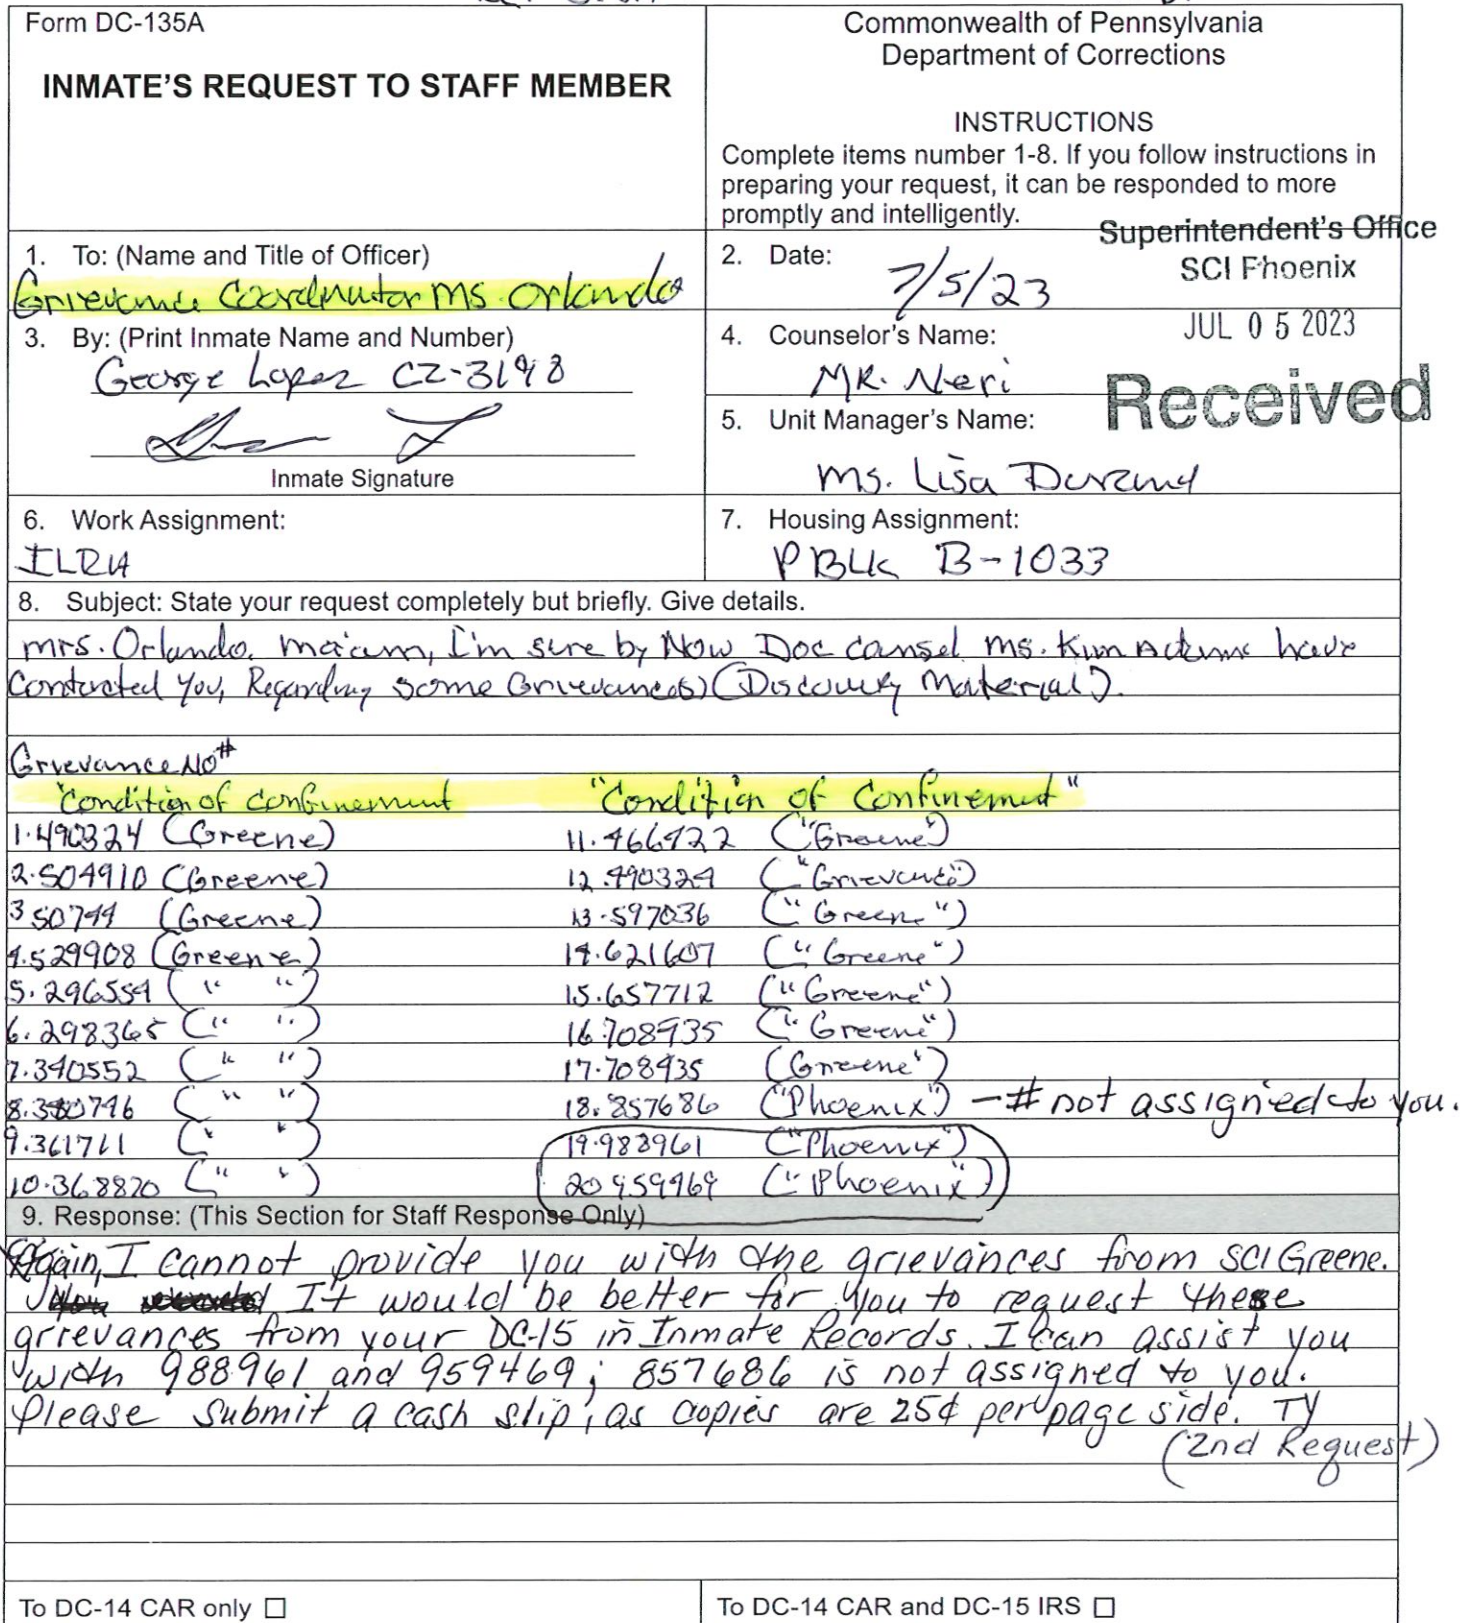 Form DC-135A
INMATE'S REQUEST TO STAFF MEMBER
Commonwealth of Pennsylvania
Department of Corrections
INSTRUCTIONS
Complete items number 1-8. If you follow instructions in
preparing your request, it can be responded to more
promptly and intelligently.
Superintendent's Office
SCI Phoenix
JUL 05 2023
Received
1. To: (Name and Title of Officer)
Grievance Coordinator Ms. Orlando
2. Date:
7/5/23
3. By: (Print Inmate Name and Number)
George Lopez CZ-3198
Inmate Signature
4. Counselor's Name:
MR. Neri
5. Unit Manager's Name:
Ms. Lisa Durand
6. Work Assignment:
7. Housing Assignment:
P BLK B-1033
8. Subject: State your request completely but briefly. Give details.
mrs. Orlando. ma'am, I'm sure by Now Doc counsel Ms. Kim Adams have
Contacted You, Regarding some Grievance(s) (Discovery Material).
Grievance No#
"Condition of Confinement "Condition of Confinement"
1.490324 (Greene) 11.466422 ("Greene")
2.504910 (Greene) 12.490324 ("Grievance")
3 50744 (Greene) 13.597036 ("Greene")
4.529908 (Greene) 14.621607 ("Greene")
5.296554 (" ") 15.657712 ("Greene")
6.298365 (" ") 16.708435 ("Greene")
7.340552 (" ") 17.708435 (Greene")
8.380746 (" ") 18.857686 ("Phoenix") - # not assigned to you.
9.361711 (" ") 19.988961 ("Phoenix")
10.368820 (" ") 20 959469 ("Phoenix")
9. Response: (This Section for Staff Response Only)
Again, I cannot provide you with the grievances from SCI Greene.
It would be better for you to request these
grievances from your DC-15 in Inmate Records. I can assist you
with 988961 and 959469; 857686 is not assigned to you.
Please submit a cash slip, as copies are 25¢ per page side. TY
(2nd Request)
To DC-14 CAR only ☐
To DC-14 CAR and DC-15 IRS ☐